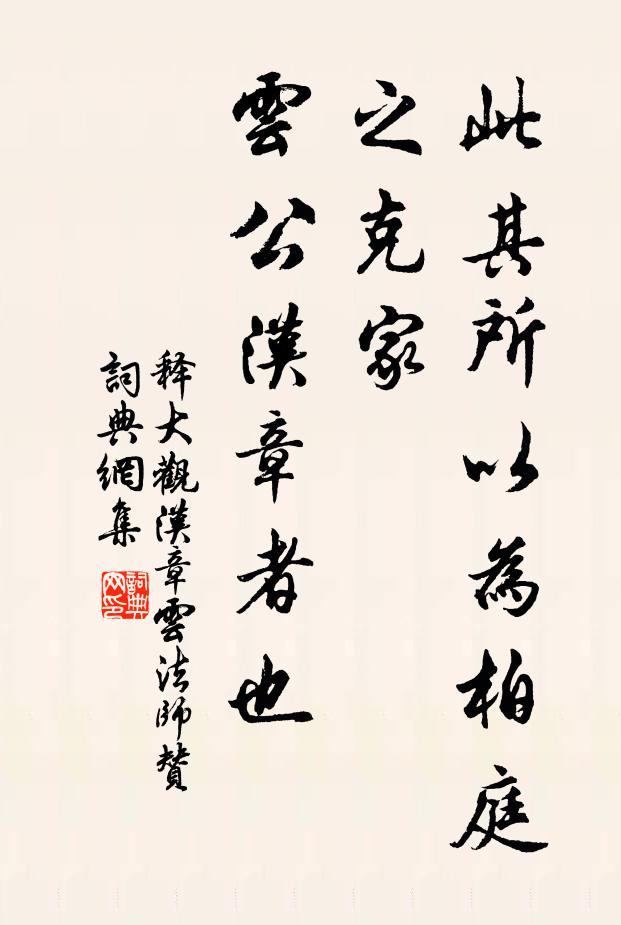 此其所以為柏庭
之克家
雲公漢章者也
释大觀漢章雲法師贊
詞典網集
詞典
网印